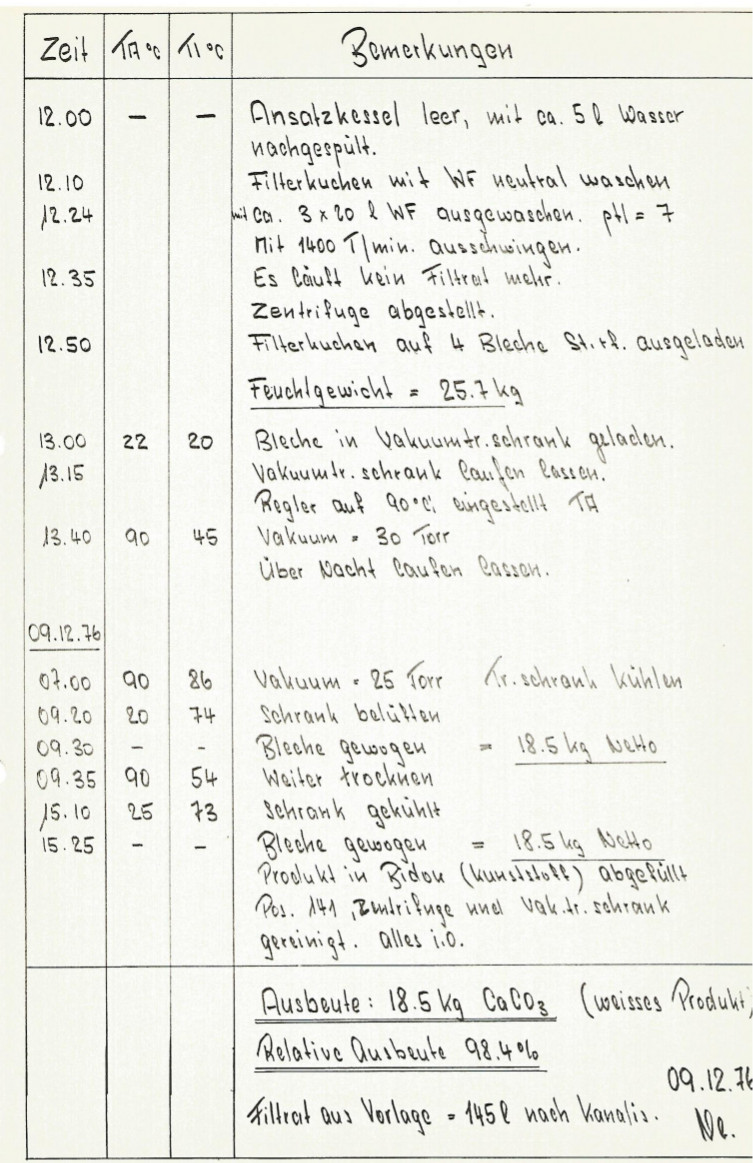 Zeit TA °C TI °C Bemerkungen
12.00 – – Ansatzkessel leer, mit ca. 5 l Wasser
nachgespült.
12.10 Filterkuchen mit WF neutral waschen
12.24 mit ca. 3 x 20 l WF ausgewaschen. pH = 7
Mit 1400 T/min. ausschwingen.
12.35 Es läuft kein Filtrat mehr.
Zentrifuge abgestellt.
12.50 Filterkuchen auf 4 Bleche St.rl. ausgeladen
Feuchtgewicht = 25.7 kg
13.00 22 20 Bleche in Vakuumtr.schrank geladen.
13.15 Vakuumtr.schrank laufen lassen.
Regler auf 90°C eingestellt TA
13.40 90 45 Vakuum = 30 Torr
Über Nacht laufen lassen.
09.12.76
07.00 90 86 Vakuum = 25 Torr Tr.schrank kühlen
09.20 20 74 Schrank belüften
09.30 – – Bleche gewogen = 18.5 kg Netto
09.35 90 54 Weiter trocknen
15.10 25 73 Schrank gekühlt
15.25 – – Bleche gewogen = 18.5 kg Netto
Produkt in Bidon (Kunststoff) abgefüllt
Pos. 141, Zentrifuge und Vak.tr.schrank
gereinigt. alles i.O.
Ausbeute: 18.5 kg CaCO3 (weisses Produkt)
Relative Ausbeute 98.4%
09.12.76
Filtrat aus Vorlage = 145 l nach Kanalis.
Ne.